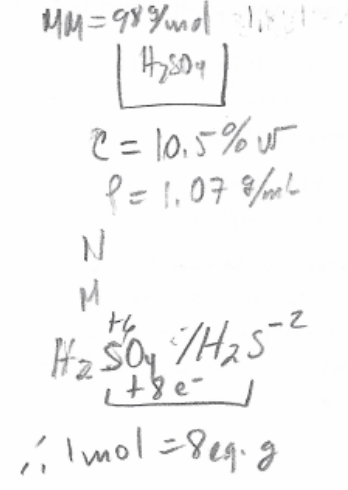 MM = 98 g/mol
H2SO4
C = 10.5 % w
ρ = 1.07 g/mL
N
M
+6
H2SO4 / H2S-2
+8 e-
∴ 1 mol = 8 eq. g